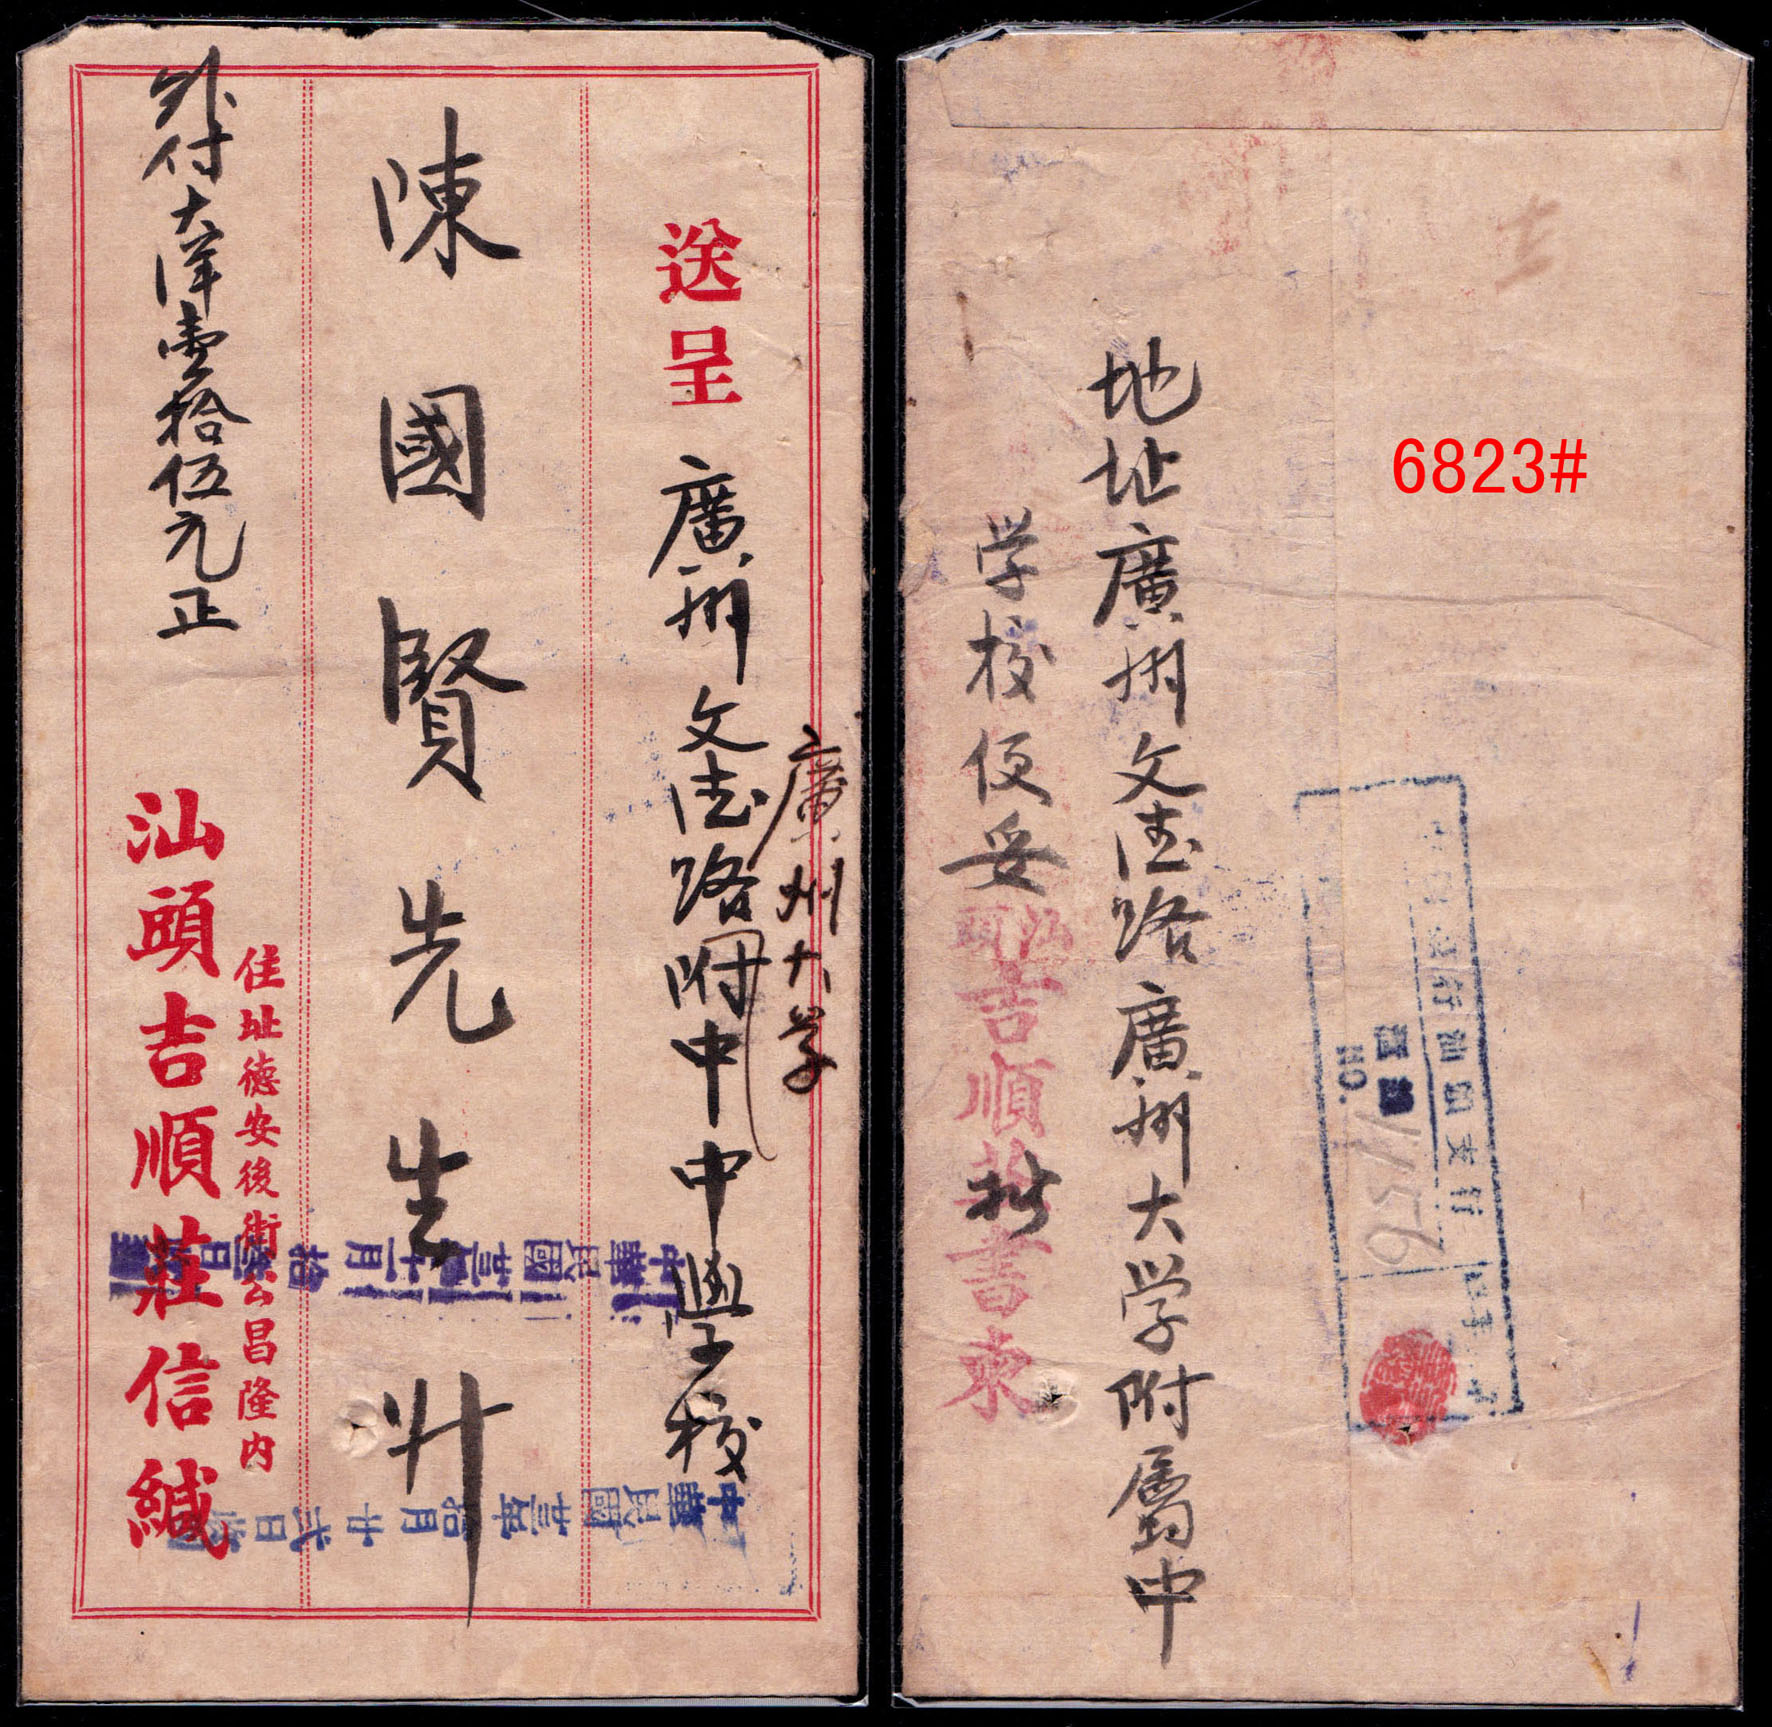 送呈
廣州文德路附中中學校
廣州大学
陳國賢先生升
外付大洋壹拾伍元正
住址德安後街公昌隆内
汕頭吉順莊信緘
中華民國廿三年十一月拾
中華民國廿三年拾月廿弍日
6823#
地址廣州文德路廣州大学附属中
学校便妥
批
汕頭
吉順莊書柬
行汕頭支行
NO.